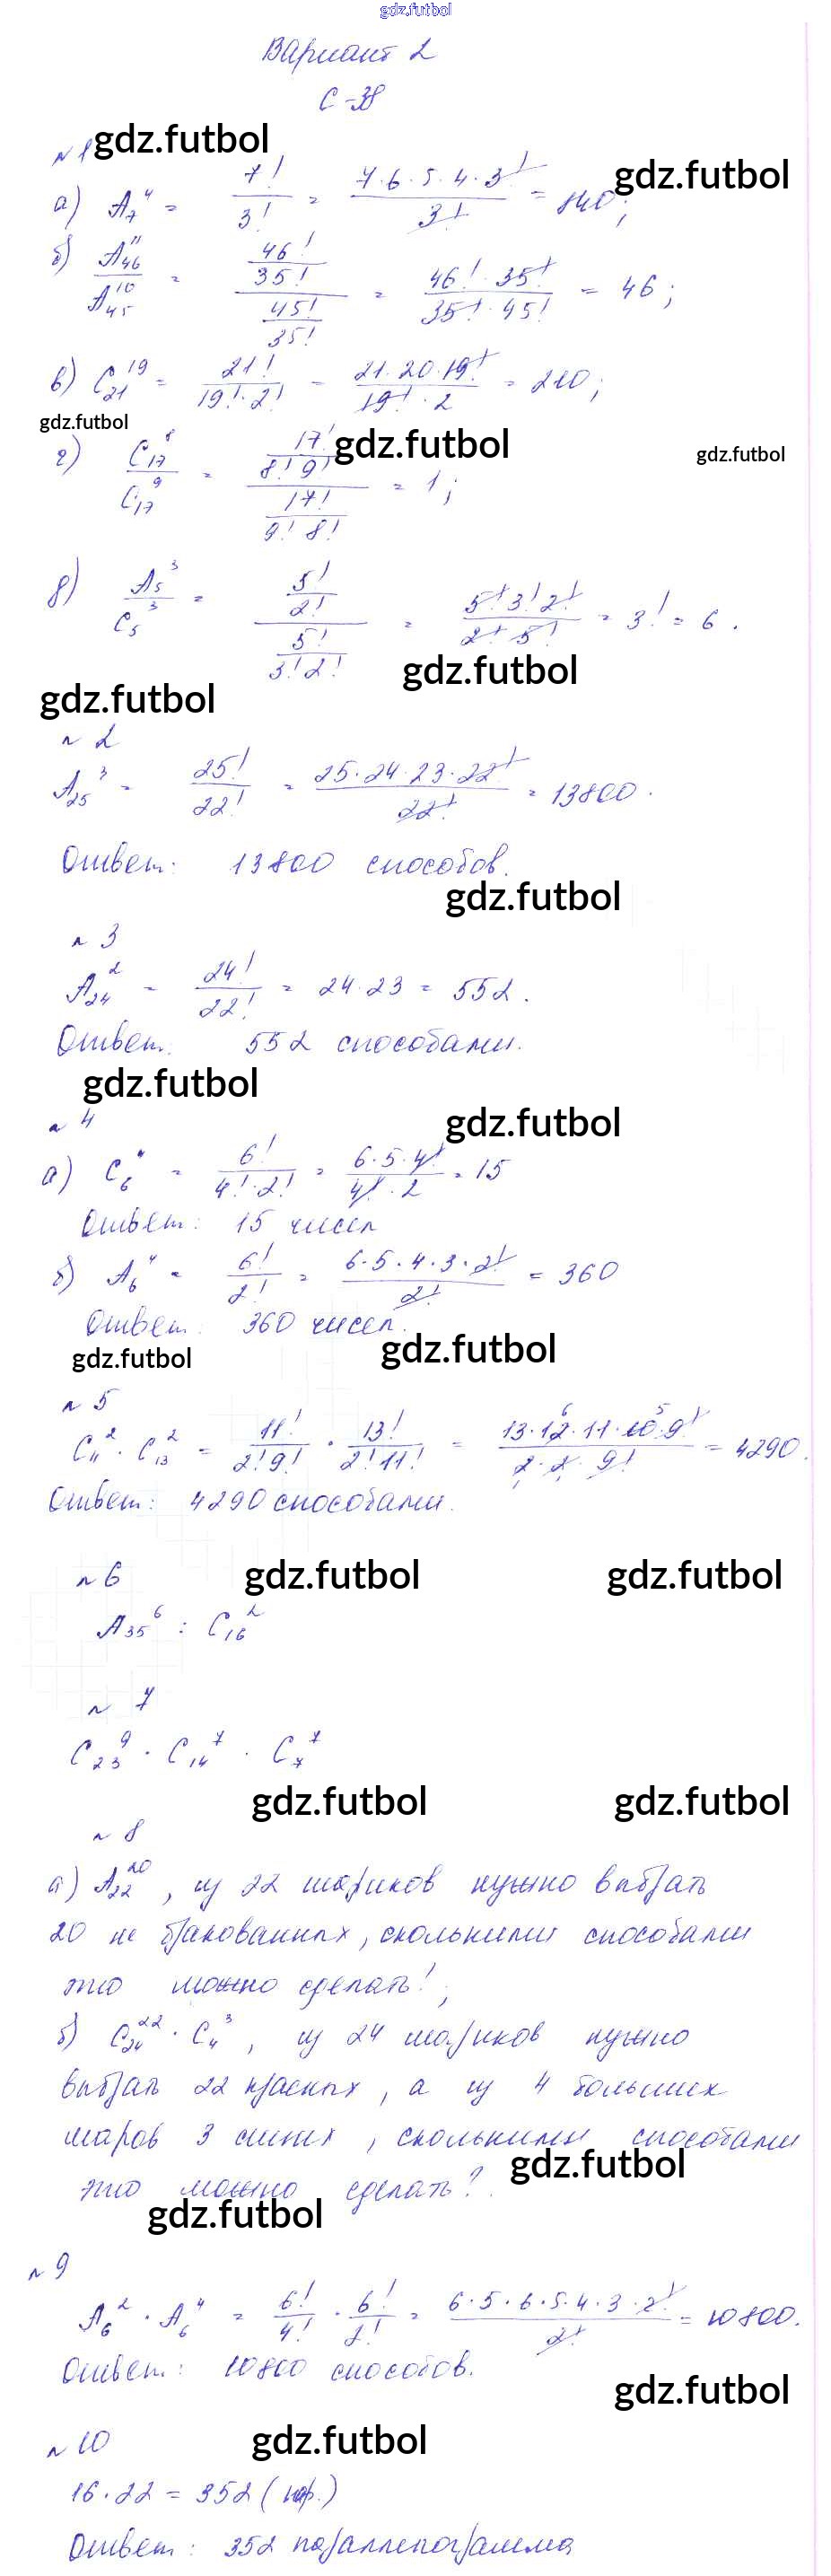 gdz.futbol
Вариант 2
С-38
№1 gdz.futbol
gdz.futbol
а) A₇⁴ = 7!/3! = 7·6·5·4·3!/3! = 840;
б) A₄₆¹¹/A₄₅¹⁰ = (46!/35!)/(45!/35!) = 46!·35!/35!·45! = 46;
в) C₂₁¹⁹ = 21!/19!·2! = 21·20·19!/19!·2 = 210;
gdz.futbol
gdz.futbol
gdz.futbol
г) C₁₇⁸/C₁₇⁹ = (17!/8!9!)/(17!/9!8!) = 1;
д) A₅³/C₅³ = (5!/2!)/(5!/3!2!) = 5!3!2!/2!5! = 3! = 6.
gdz.futbol
gdz.futbol
№2
A₂₅³ = 25!/22! = 25·24·23·22!/22! = 13800.
Ответ: 13800 способов.
gdz.futbol
№3
A₂₄² = 24!/22! = 24·23 = 552.
Ответ: 552 способами.
gdz.futbol
gdz.futbol
№4
а) C₆⁴ = 6!/4!·2! = 6·5·4!/4!·2 = 15
Ответ: 15 чисел
б) A₆⁴ = 6!/2! = 6·5·4·3·2!/2! = 360
Ответ: 360 чисел.
gdz.futbol
gdz.futbol
№5
C₁₁² · C₁₃² = 11!/2!9! · 13!/2!11! = 13·12·11·10·9!/2·2·9! = 4290.
Ответ: 4290 способами.
№6
gdz.futbol
gdz.futbol
A₃₅⁶ : C₁₆²
№7
C₂₃⁹ · C₁₄⁷ · C₇⁷
gdz.futbol
gdz.futbol
№8
а) A₂₂²⁰, из 22 шариков нужно выбрать
20 не бракованных, сколькими способами
это можно сделать!;
б) C₂₄²² · C₄³, из 24 шариков нужно
выбрать 22 красных, а из 4 больших
шаров 3 синих, сколькими способами
gdz.futbol
это можно сделать?.
gdz.futbol
№9
A₆² · A₆⁴ = 6!/4! · 6!/2! = 6·5·6·5·4·3·2!/2! = 10800.
Ответ: 10800 способов.
gdz.futbol
№10
gdz.futbol
16·22 = 352 (пар.)
Ответ: 352 параллелограмма